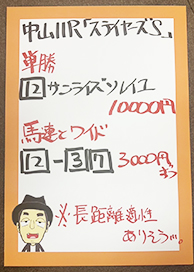 中山11R「ステイヤーズS」
単勝
12 サンライズソレイユ
10000円
馬連とワイド
12-37 3000円
ずつ
※長距離適性
ありそう…。